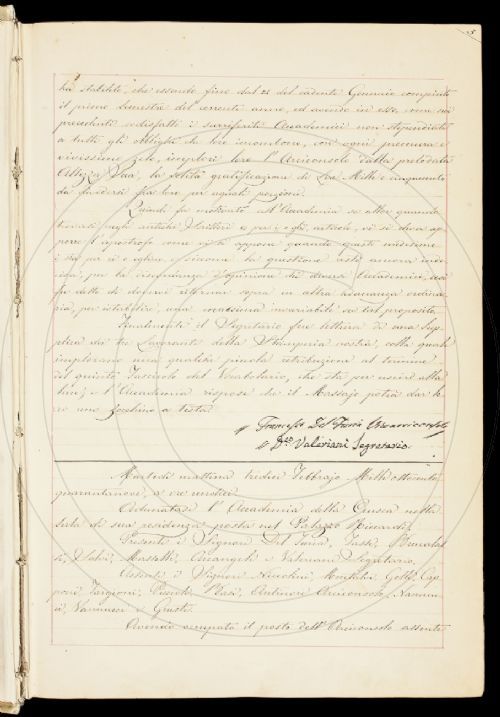 ha stabilito, che essendo fino dal 28 del cadente Gennaio compiuto
il primo bimestre del corrente anno, ed avendo in esso, come nei
precedenti sodisfatti i surriferiti Accademici non stipendiati
a tutti gli obblighi che loro incombono, con ogni premura e
vivissimo zelo, implori loro l'Arciconsolo dalla prelodata
Altezza Sua, la solita gratificazione di Lire Mille e cinquecento
da fra loro per eguali porzioni.
Quindi fu motivato all'Accademia se allor quando
trovasi negli antichi Scrittori e per i egli, articolo, vi si deva ap-
porre l'apostrofo come vi si appone quando questi medesimo
i sta per ii e eglino, e siccome la questione restò ancora inde-
cisa, per la discordanza d'opinione dei diversi Accademici, così
fu detto di doversi ritornar sopra in altra adunanza ordina-
ria, per istabilire, una massima invariabile su tal proposito.
Finalmente il Segretario fece lettura di una Sup-
plica dei tre Lavoranti della Stamperia nostra, colla quale
imploravano una qualche piccola retribuzione al termine
del quinto Fascicolo del Vocabolario, che sta per uscire alla
luce; e l'Accademia rispose che il Massajo potrà dar lo-
ro uno zecchino a testa.
Francesco Del Furia Vicearciconsolo
D.co Valeriani Segretario.
Martedì mattina tredici Febbrajo Mille ottocento
quarantanove, a ore undici.
Adunatasi l'Accademia della Crusca nella
Sala di sua residenza posta nel Palazzo Riccardi,
Presenti i Signori Del Furia, Tassi, Bencini
, Salvi, Masselli, Arcangeli e Valeriani Segretario.
Assenti i Signori Niccolini, Montalvi, Gelli, Cap-
poni, Targioni, Puccioti, Basi, Antinori Arciconsolo, Nannuc-
ci, Vannucci e Giusti.
Avendo occupato il posto dell'Arciconsolo assente